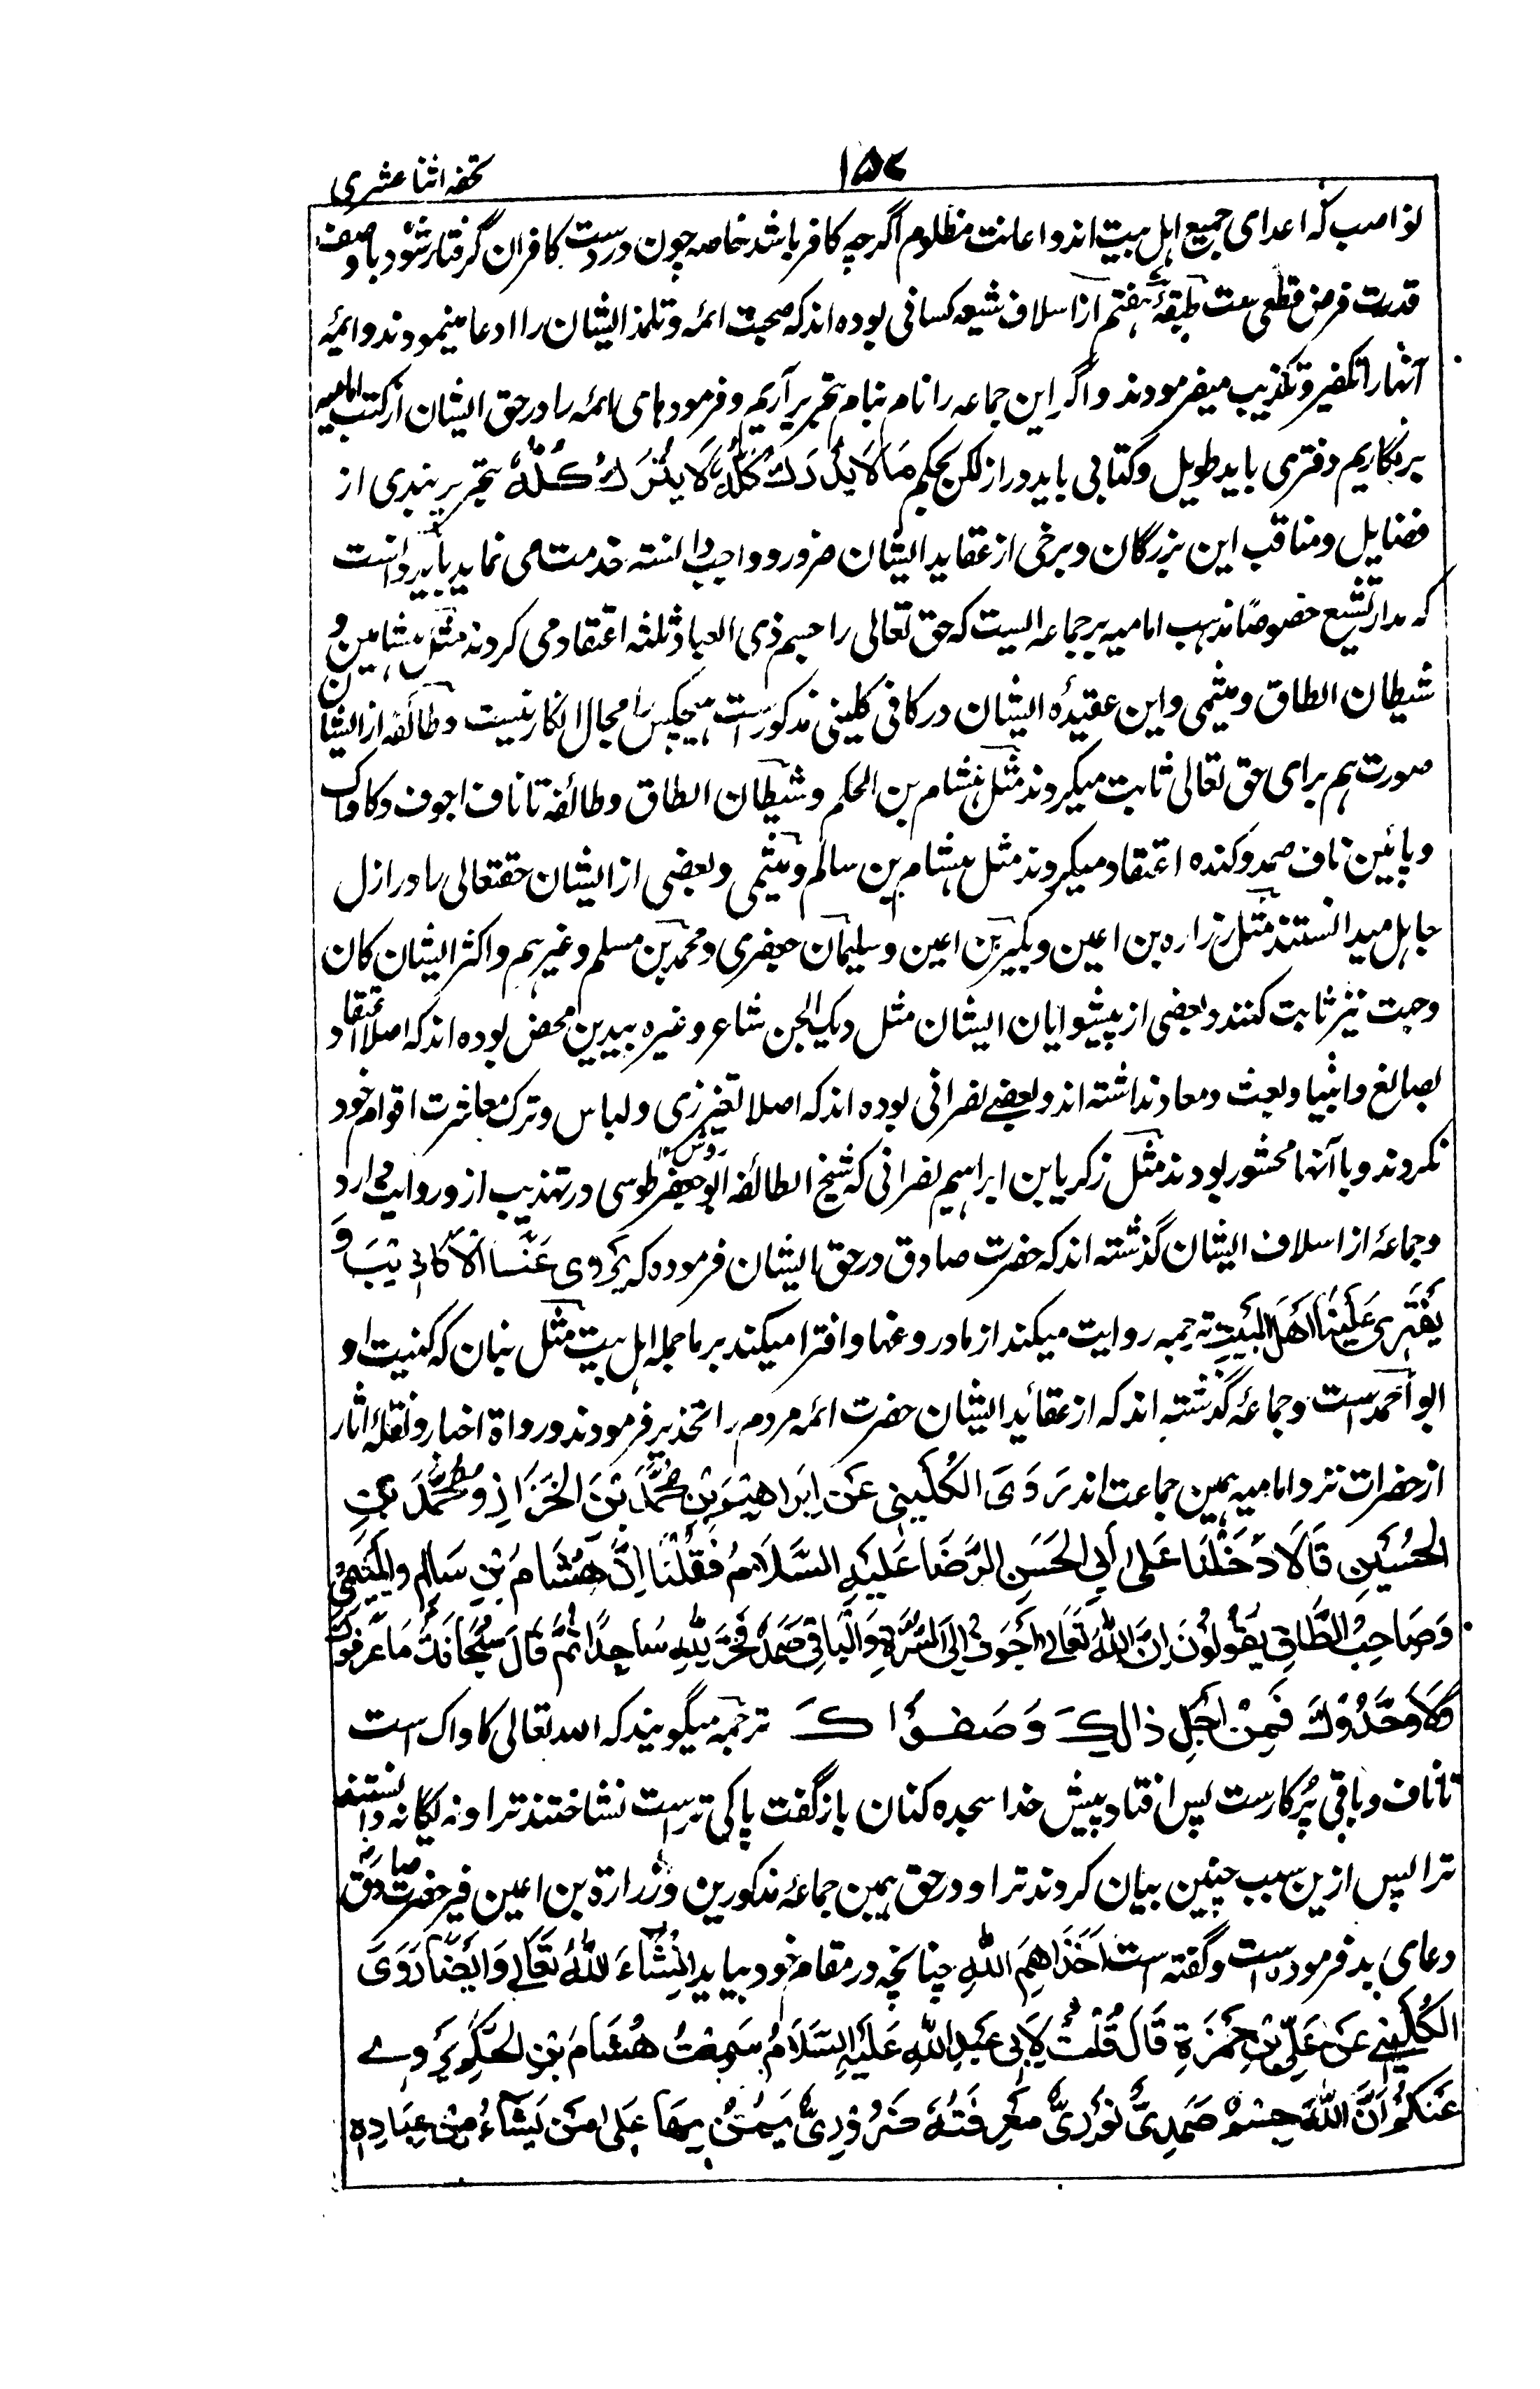 ۱۵۲
تحفہ اثنا عشری
نواصب کہ اعدای جمیع اہل بیت اند و اعانت مظلوم اگرچہ کافر باشد خاصہ چون در دست کافران گرفتار شود با وصف
قدرت فرض قطعی ست طبقۂ ہفتم از اسلاف شیعہ کسانی بودہ اند کہ صحبت ائمہ و تلمذ ایشان را ادعا مینمودند و ائمہ
آنہا را تکفیر و تکذیب میفرمودند و اگر این جماعہ را نام بنام بتحریر آریم و فرمودہای ائمہ را در حق ایشان از کتب امامیہ
برنگاریم دفتری باید طویل و کتابی باید دراز لکن بحکم مَا لَا يُدْرَكُ كُلُّهُ لَا يُتْرَكُ كُلُّهُ بتحریر نبذی از
فضایل و مناقب این بزرگان و برخی از عقاید ایشان ضرور و واجب دانستہ خدمت می نماید باید دانست
کہ مدار تشیع خصوصًا مذہب امامیہ بر جماعہ ایست کہ حق تعالی را جسم ذی ابعاد ثلثہ اعتقاد می کردند مثل ہشامین و
شیطان الطاق و میثمی و این عقیدہ ایشان در کافی کلینی مذکورست ہیچکس را مجال انکار نیست و طائفہ از ایشان
صورت ہم برای حق تعالی ثابت میکردند مثل ہشام بن الحکم و شیطان الطاق و طائفہ تا ناف اجوف و کاواک
و پائین ناف صمد و کندہ اعتقاد میکردند مثل ہشام بن سالم و میثمی و بعضی از ایشان حقتعالی را در ازل
جاہل میدانستند مثل زرارہ بن اعین و بکیر بن اعین و سلیمان جعفری و محمد بن مسلم و غیرہم و اکثر ایشان مکان
و جہت نیز ثابت کنند و بعضی از پیشوایان ایشان مثل دیک الجن شاعر و غیرہ بیدین محض بودہ اند کہ اصلا اعتقاد
بصانع و انبیا و بعث و معاد نداشتہ اند و بعضے نصرانی بودہ اند کہ اصلا تغیر زی و لباس و ترک معاشرت اقوام خود
نکردند و با آنہا محشور بودند مثل زکریا بن ابراہیم نصرانی کہ شیخ الطائفہ ابو جعفر طوسی در تہذیب ازو روایت دارد
و جماعۂ از اسلاف ایشان گذشتہ اند کہ حضرت صادق در حق ایشان فرمودہ کہ يَرْوِى عَنَّا الْأَكَاذِيْبَ وَ
يَفْتَرِى عَلَيْنَا اَهْلَ الْبَيْتِ ترجمہ روایت میکند از ما دروغہا و افترا میکند بر ما جملہ اہل بیت مثل بنان کہ کنیت او
ابو احمد است و جماعۂ گذشتہ اند کہ از عقائد ایشان حضرت ائمہ مردم را تحذیر فرمودند و رواۃ اخبار و نقلۂ اثار
از حضرات نزد امامیہ ہمین جماعت اند رَوَى الْكُلَيْنِي عَنْ اِبْرَاهِيْمَ بْنِ مُحَمَّدِ بْنِ الْخَزَّازِ وَمُحَمَّدِ بْنِ
الْحُسَيْنِ قَالَا دَخَلْنَا عَلٰى اَبِي الْحَسَنِ الرِّضَا عَلَيْهِ السَّلَامُ فَقُلْنَا اِنَّ هِشَامَ بْنَ سَالِمٍ وَالْمِيْثَمِيُّ
وَصَاحِبُ الطَّاقِ يَقُوْلُوْنَ اِنَّ اللّٰهَ تَعَالٰى اَجْوَفُ اِلَى السُّرَّةِ وَالْبَاقِيْ صَمَدٌ فَخَرَّ لِلّٰهِ سَاجِدًا ثُمَّ قَالَ سُبْحَانَكَ مَا عَرَفُوْكَ
وَلَا وَحَّدُوْكَ فَمِنْ اَجْلِ ذٰلِكَ وَصَفُوْاكَ ترجمہ میگویند کہ اللہ تعالی کاواک است
تا ناف و باقی پُرکارست پس افتاد پیش خدا سجدہ کنان باز گفت پاکی تراست نشاختند ترا و نہ یگانہ دانستند
ترا پس ازین سبب چنین بیان کردند ترا و در حق ہمین جماعۂ مذکورین و زرارۃ بن اعین فیز حضرت صادق رض
دعای بد فرمودہ است و گفتہ است اَخْزَاهُمُ اللّٰهُ چنانچہ در مقام خود بیاید اِنْشَاءَ اللّٰهُ تَعَالٰے وَاَيْضًا رَوَى
الْكُلَيْنِيُّ عَنْ عَلِيِّ بْنِ حَمْزَةَ قَالَ قُلْتُ لِاَبِى عَبْدِ اللّٰهِ عَلَيْهِ السَّلَامُ سَمِعْتُ هِشَامَ بْنَ الْحَكَمِ يَرْوِے
عَنْكُمْ اَنَّ اللّٰهَ جِسْمٌ صَمَدِىٌّ نُوْرِىٌّ مَعْرِفَتُهُ ضَرُوْرِىٌّ يَمُنُّ بِهَا عَلٰى مَنْ يَشَاءُ مِنْ عِبَادِهِ